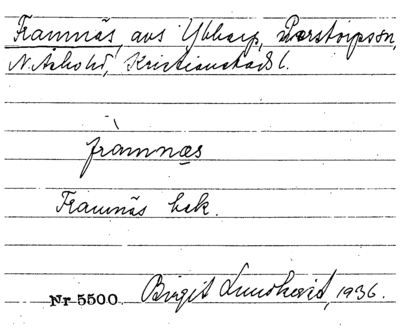 Framnäs, avs Ybbarp, Perstorpssn,
N. Åsbohd, Kristianstads l.
fràmnæs
Framnäs bek.
Nr 5500. Birgit Lundkvist, 1936.